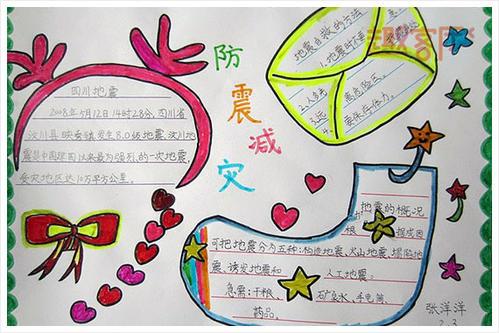 四川地震
2008年5月12日14时28分,四川省
汶川县映秀镇发生8.0级地震,汶川地
震是中国建国以来最为强烈的一次地震,
受灾地区达10万平方公里。
防
震
减
灾
地震自救的方法
1.地震时不要
2.人多先
3.远 离危险区
4. 要保存体力。
地震的概况
根 据成因
可把地震分为五种:构造地震、火山地震、塌陷地
震、诱发地震和 人工地震。
急需:干粮、 矿泉水、手电筒
药品。
张洋洋
2.3